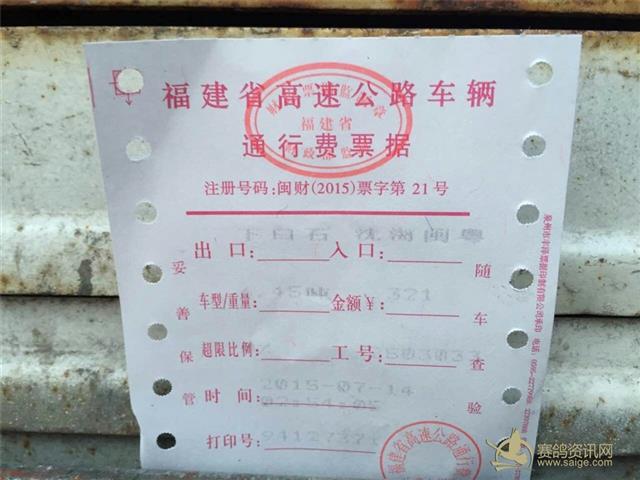 福建省高速公路车辆
通行费票据
福建省
注册号码:闽财(2015)票字第 21 号
下白石 沈海闽粤
出口: 入口:
车型/重量: 金额¥: 321
超限比例: 工号: 503033
时间: 2015-07-14
02:54:05
打印号: 94127371
妥善保管
随车查验
福建省高速公路通行费
赛鸽资讯网
www.saige.com